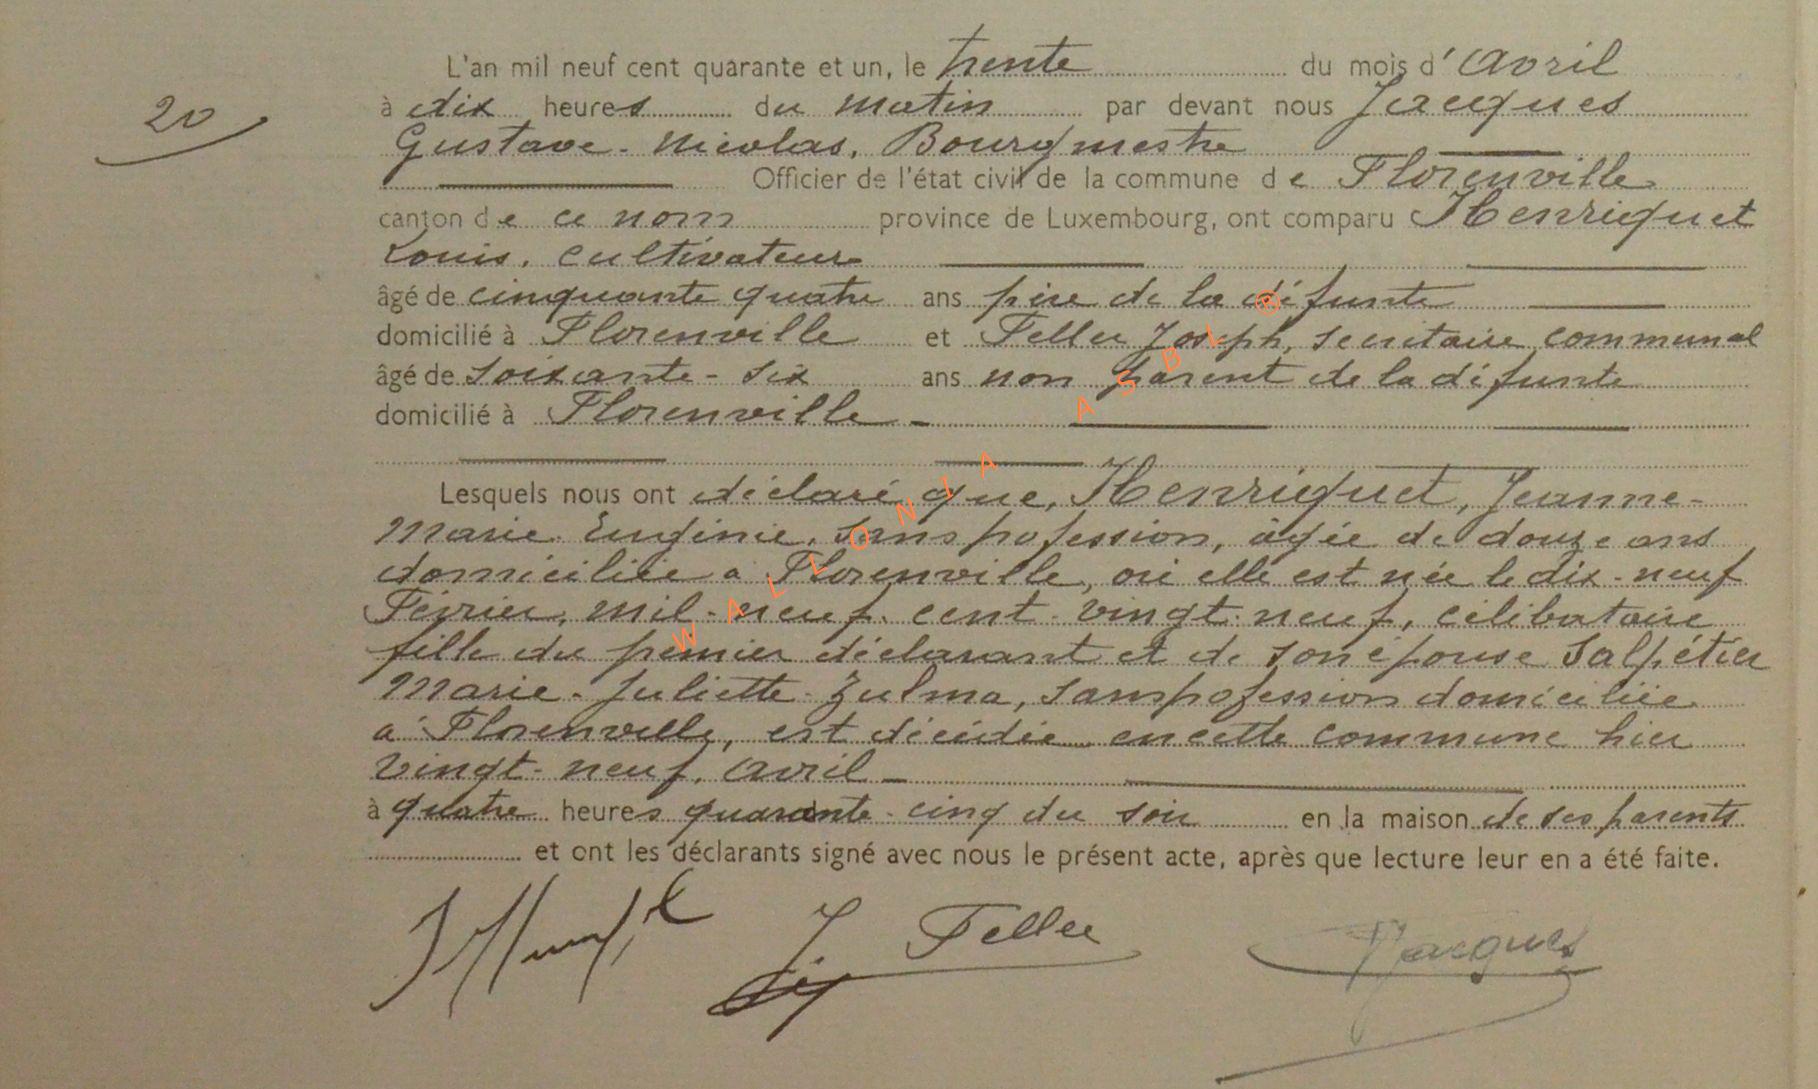 L'an mil neuf cent quarante et un, le trente du mois d'Avril
20
à dix heures du matin par devant nous Jacques
Gustave - Nicolas, Bourgmestre
Officier de l'état civil de la commune de Florenville
canton de ce nom province de Luxembourg, ont comparu Henriquet
Louis, cultivateur
âgé de cinquante quatre ans père de la défunte
domicilié à Florenville et Feller Joseph, secrétaire communal
âgé de soixante - six ans non parent de la défunte
domicilié à Florenville -
Lesquels nous ont déclaré que, Henriquet, Jeanne -
Marie Eugénie, sans profession, âgée de douze ans
domiciliée à Florenville, où elle est née le dix - neuf
Février, mil - neuf - cent - vingt - neuf, célibataire
fille du premier déclarant et de son épouse Salpétier
Marie - Juliette - Zulma, sans profession domiciliée
à Florenville, est décédée en cette commune hier
vingt - neuf, avril -
à quatre heures quarante - cinq du soir en la maison de ses parents
et ont les déclarants signé avec nous le présent acte, après que lecture leur en a été faite.
J Feller Jacques
WALLONIA ASBL ®